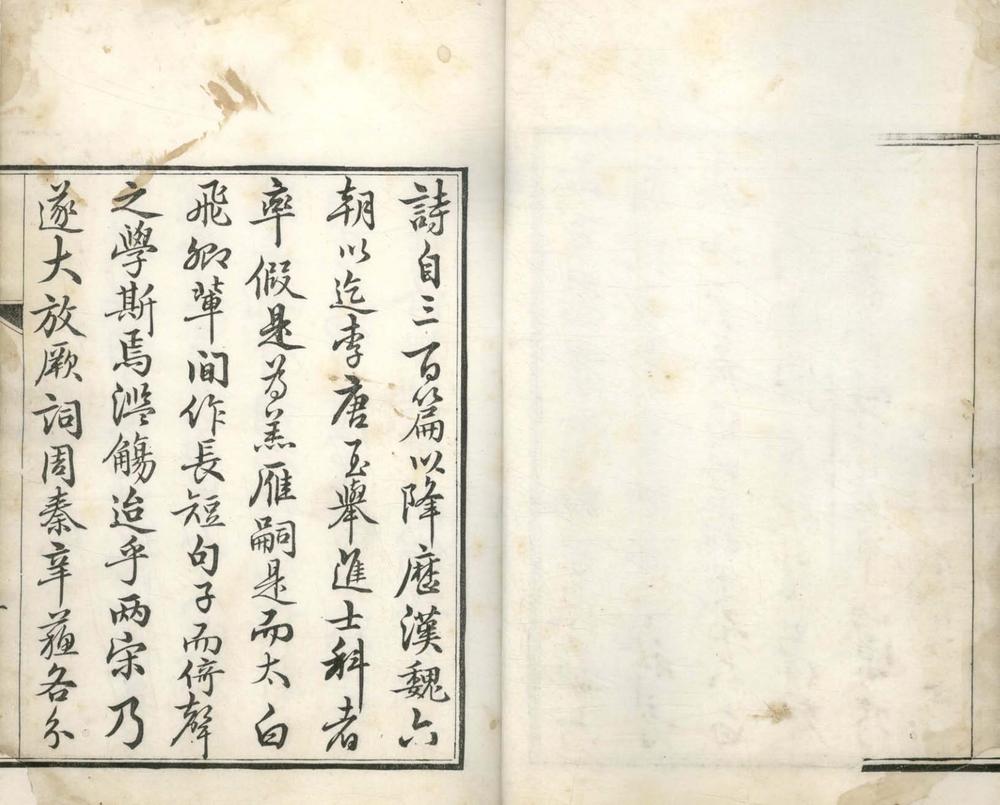 詩自三百篇以降歷漢魏六
朝以迄李唐至舉進士科者
率假是為羔雁嗣是而太白
飛卿輩間作長短句子而倚聲
之學斯焉濫觴迨乎兩宋乃
遂大放厥詞周秦辛蘇各分